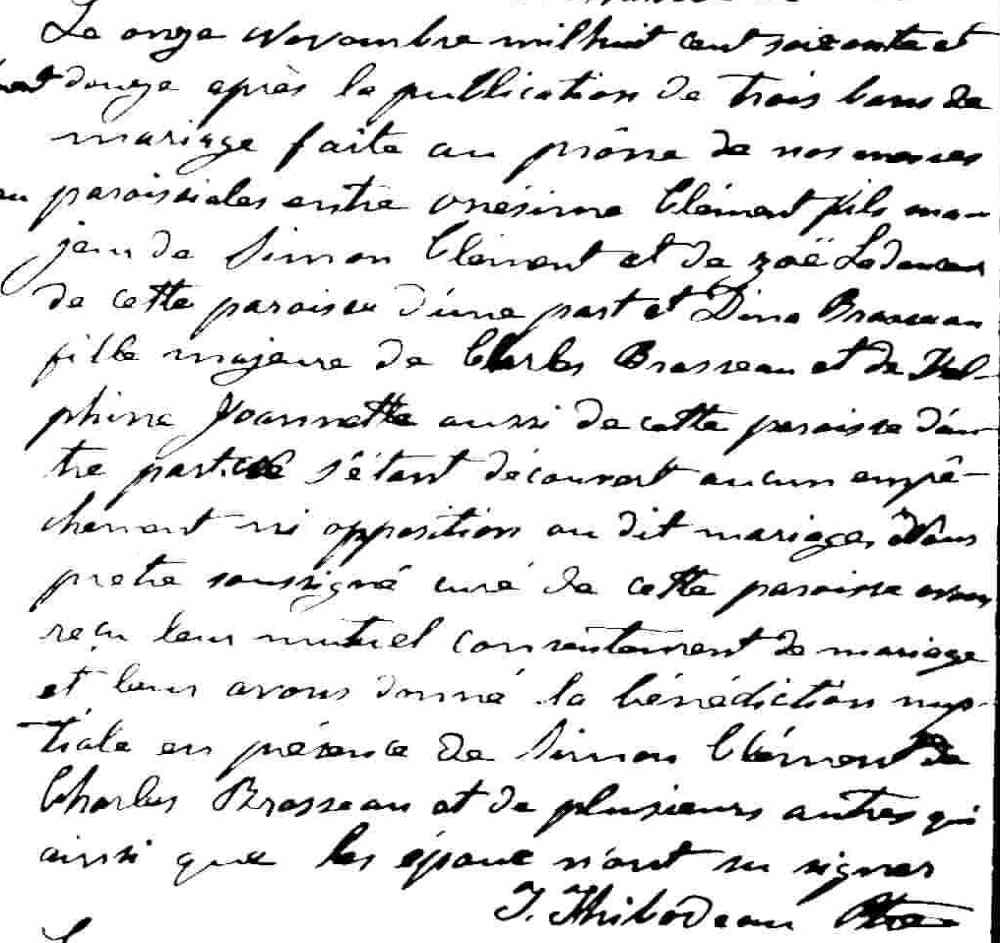 Le onze Novembre mil huit cent soixante et
douze après la publication de trois bans de
mariage faite au prône de nos messes
paroissiales entre Onésime Clément fils ma-
jeur de Simon Clément et de Zoë Ladouceur
de cette paroisse d'une part et Dina Brasseau
fille majeure de Charles Brasseau et de Del-
phine Joannette aussi de cette paroisse d'au-
tre part s'étant découvert aucun empê-
chement ni opposition au dit mariage, Nous
prêtre soussigné curé de cette paroisse avons
reçu leur mutuel consentement de mariage
et leur avons donné la bénédiction nup-
tiale en présence de Simon Clément de
Charles Brasseau et de plusieurs autres qui
ainsi que les époux n'ont su signer
J. Thibodeau Ptre